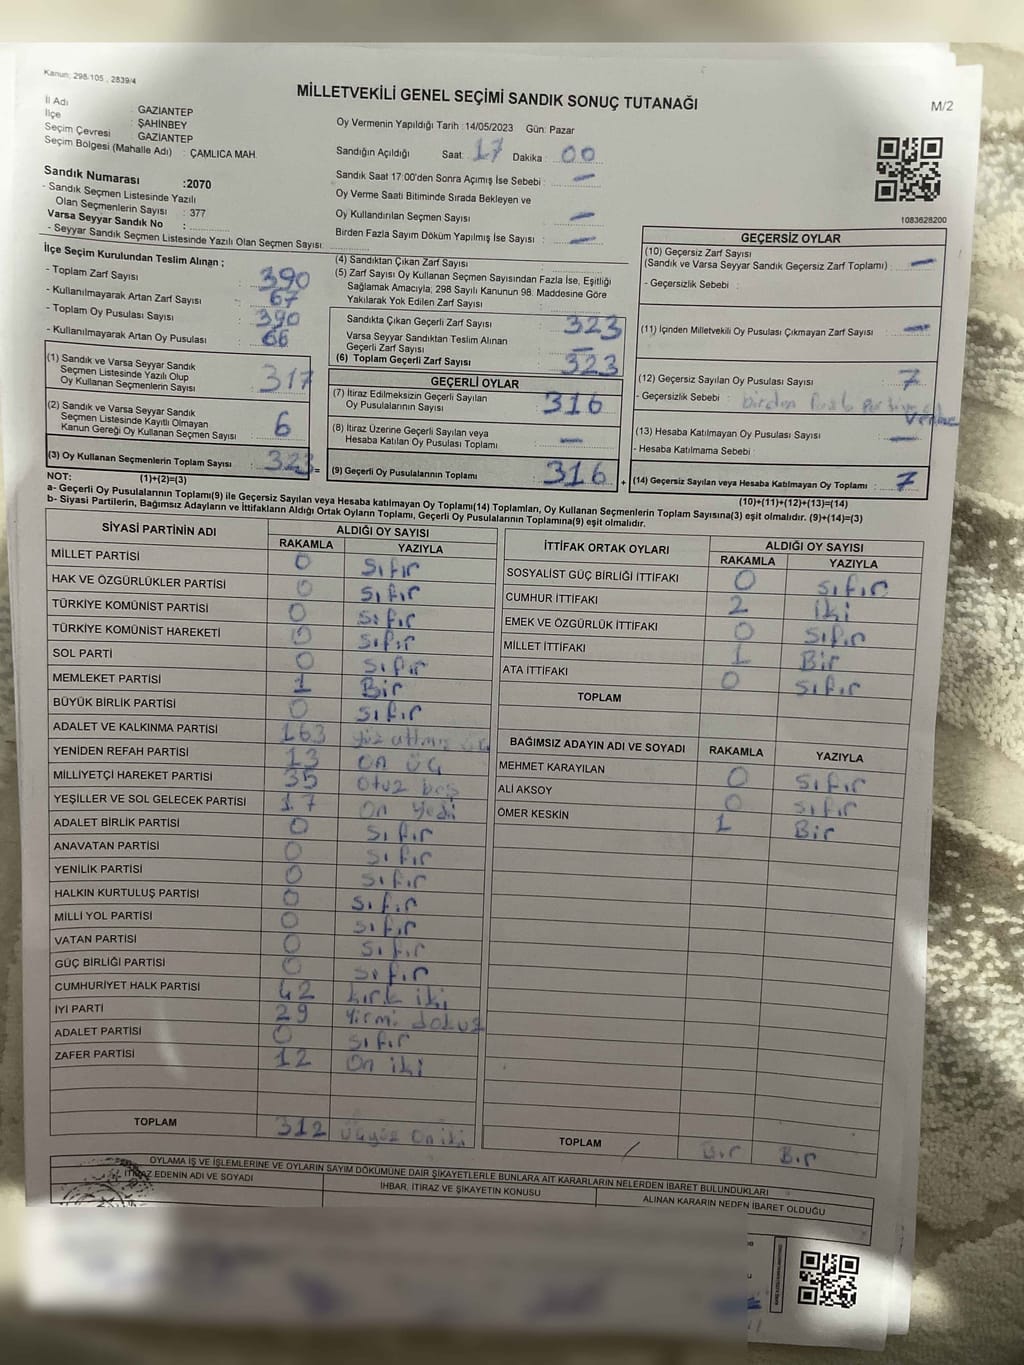 Kanun; 298.105 , 2839/4
MİLLETVEKİLİ GENEL SEÇİMİ SANDIK SONUÇ TUTANAĞI
M/2
İl Adı : GAZİANTEP
İlçe : ŞAHİNBEY
Seçim Çevresi : GAZİANTEP
Seçim Bölgesi (Mahalle Adı) : ÇAMLICA MAH.
Oy Vermenin Yapıldığı Tarih : 14/05/2023 Gün: Pazar
Sandığın Açıldığı Saat: 17 Dakika : 00
Sandık Saat 17:00'den Sonra Açımış İse Sebebi : —
Oy Verme Saati Bitiminde Sırada Bekleyen ve
Oy Kullandırılan Seçmen Sayısı —
Birden Fazla Sayım Döküm Yapılmış İse Sayısı : —
1083628200
Sandık Numarası :2070
- Sandık Seçmen Listesinde Yazılı
Olan Seçmenlerin Sayısı : 377
Varsa Seyyar Sandık No :
- Seyyar Sandık Seçmen Listesinde Yazılı Olan Seçmen Sayısı
İlçe Seçim Kurulundan Teslim Alınan ;
- Toplam Zarf Sayısı : 390
- Kullanılmayarak Artan Zarf Sayısı : 67
- Toplam Oy Pusulası Sayısı : 390
- Kullanılmayarak Artan Oy Pusulası : 66
(1) Sandık ve Varsa Seyyar Sandık
Seçmen Listesinde Yazılı Olup
Oy Kullanan Seçmenlerin Sayısı : 317
(2) Sandık ve Varsa Seyyar Sandık
Seçmen Listesinde Kayıtlı Olmayan
Kanun Gereği Oy Kullanan Seçmen Sayısı : 6
(3) Oy Kullanan Seçmenlerin Toplam Sayısı : 323 =
(4) Sandıktan Çıkan Zarf Sayısı :
(5) Zarf Sayısı Oy Kullanan Seçmen Sayısından Fazla İse, Eşitliği
Sağlamak Amacıyla; 298 Sayılı Kanunun 98. Maddesine Göre
Yakılarak Yok Edilen Zarf Sayısı :
Sandıkta Çıkan Geçerli Zarf Sayısı : 323
Varsa Seyyar Sandıktan Teslim Alınan
Geçerli Zarf Sayısı : —
(6) Toplam Geçerli Zarf Sayısı : 323
GEÇERLİ OYLAR
(7) İtiraz Edilmeksizin Geçerli Sayılan
Oy Pusulalarının Sayısı : 316
(8) İtiraz Üzerine Geçerli Sayılan veya
Hesaba Katılan Oy Pusulası Toplamı : —
(9) Geçerli Oy Pusulalarının Toplamı : 316 +
GEÇERSİZ OYLAR
(10) Geçersiz Zarf Sayısı
(Sandık ve Varsa Seyyar Sandık Geçersiz Zarf Toplamı) : —
- Geçersizlik Sebebi :
(11) İçinden Milletvekili Oy Pusulası Çıkmayan Zarf Sayısı : —
(12) Geçersiz Sayılan Oy Pusulası Sayısı : 7
- Geçersizlik Sebebi : birden fazla partiye
(13) Hesaba Katılmayan Oy Pusulası Sayısı : —
- Hesaba Katılmama Sebebi :
(14) Geçersiz Sayılan veya Hesaba Katılmayan Oy Toplamı : 7
NOT: (1)+(2)=(3)
(10)+(11)+(12)+(13)=(14)
a- Geçerli Oy Pusulalarının Toplamı(9) ile Geçersiz Sayılan veya Hesaba katılmayan Oy Toplamı(14) Toplamları, Oy Kullanan Seçmenlerin Toplam Sayısına(3) eşit olmalıdır. (9)+(14)=(3)
b- Siyasi Partilerin, Bağımsız Adayların ve İttifakların Aldığı Ortak Oyların Toplamı, Geçerli Oy Pusulalarının Toplamına(9) eşit olmalıdır.
SİYASİ PARTİNİN ADI ALDIĞI OY SAYISI
RAKAMLA YAZIYLA
MİLLET PARTİSİ 0 Sıfır
HAK VE ÖZGÜRLÜKLER PARTİSİ 0 Sıfır
TÜRKİYE KOMÜNİST PARTİSİ 0 Sıfır
TÜRKİYE KOMÜNİST HAREKETİ 0 Sıfır
SOL PARTİ 0 Sıfır
MEMLEKET PARTİSİ 1 Bir
BÜYÜK BİRLİK PARTİSİ 0 Sıfır
ADALET VE KALKINMA PARTİSİ 163 yüz altmış üç
YENİDEN REFAH PARTİSİ 13 On üç
MİLLİYETÇİ HAREKET PARTİSİ 35 otuz beş
YEŞİLLER VE SOL GELECEK PARTİSİ 17 On yedi
ADALET BİRLİK PARTİSİ 0 Sıfır
ANAVATAN PARTİSİ 0 Sıfır
YENİLİK PARTİSİ 0 Sıfır
HALKIN KURTULUŞ PARTİSİ 0 Sıfır
MİLLİ YOL PARTİSİ 0 Sıfır
VATAN PARTİSİ 0 Sıfır
GÜÇ BİRLİĞİ PARTİSİ 0 Sıfır
CUMHURİYET HALK PARTİSİ 42 kırk iki
İYİ PARTİ 29 Yirmi dokuz
ADALET PARTİSİ 0 Sıfır
ZAFER PARTİSİ 12 On iki
TOPLAM 312 üçyüz On iki
İTTİFAK ORTAK OYLARI ALDIĞI OY SAYISI
RAKAMLA YAZIYLA
SOSYALİST GÜÇ BİRLİĞİ İTTİFAKI 0 Sıfır
CUMHUR İTTİFAKI 2 iki
EMEK VE ÖZGÜRLÜK İTTİFAKI 0 Sıfır
MİLLET İTTİFAKI 1 Bir
ATA İTTİFAKI 0 Sıfır
TOPLAM
BAĞIMSIZ ADAYIN ADI VE SOYADI RAKAMLA YAZIYLA
MEHMET KARAYILAN 0 Sıfır
ALİ AKSOY 0 Sıfır
ÖMER KESKİN 1 Bir
TOPLAM Bir Bir
OYLAMA İŞ VE İŞLEMLERİNE VE OYLARIN SAYIM DÖKÜMÜNE DAİR ŞİKAYETLERLE BUNLARA AİT KARARLARIN NELERDEN İBARET BULUNDUKLARI
İTİRAZ EDENİN ADI VE SOYADI
İHBAR, İTİRAZ VE ŞİKAYETİN KONUSU
ALINAN KARARIN NEDEN İBARET OLDUĞU